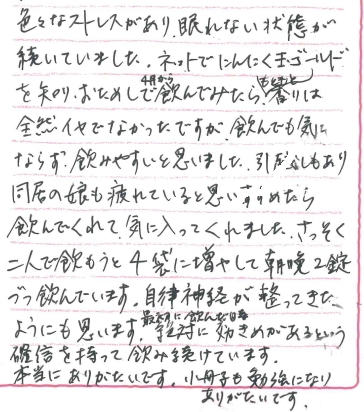 色々なストレスがあり、眠れない状態が
続いていました。ネットでにんにく玉ゴールド
を知り、おためしで4月から飲んでみたら、もともと香りは
全然イヤでなかったですが、飲んでも気に
ならず、飲みやすいと思いました。引ぱしもあり
同居の娘も疲れていると思いすすめたら
飲んでくれて、気に入ってくれました。さっそく
二人で飲もうと4袋に増やして朝晩2錠
づつ飲んでいます。自律神経が整ってきた
ようにも思います。最初に飲んだ時絶対に効きめがあるという
確信を持って飲み続けています。
本当にありがたいです。小冊子も勉強になり
ありがたいです。